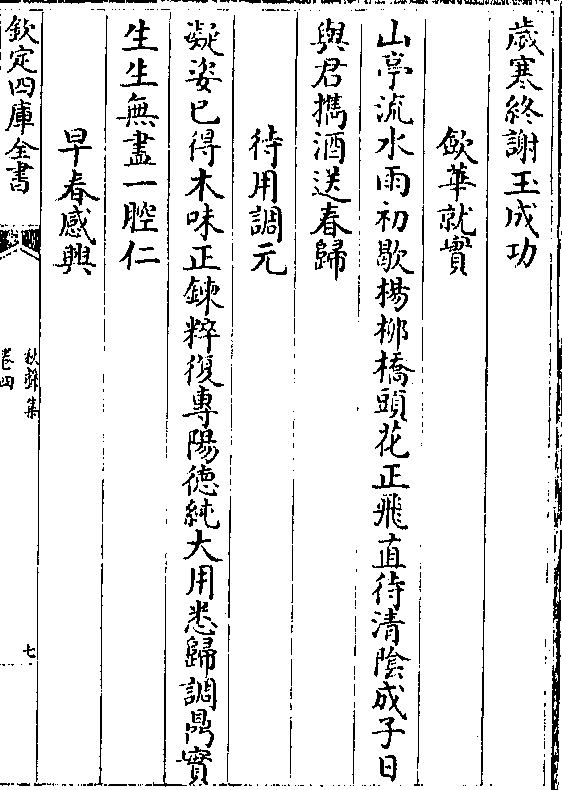 歲寒終謝玉成功
歛華就實
山亭流水雨初歇楊栁橋頭花正飛直待清陰成子日
與君携酒送春歸
待用調元
凝姿已得木味正鍊粹復專陽德純大用悉歸調鼎實
生生無盡一腔仁
早春感興
欽定四庫全書
秋聲集
卷四
七